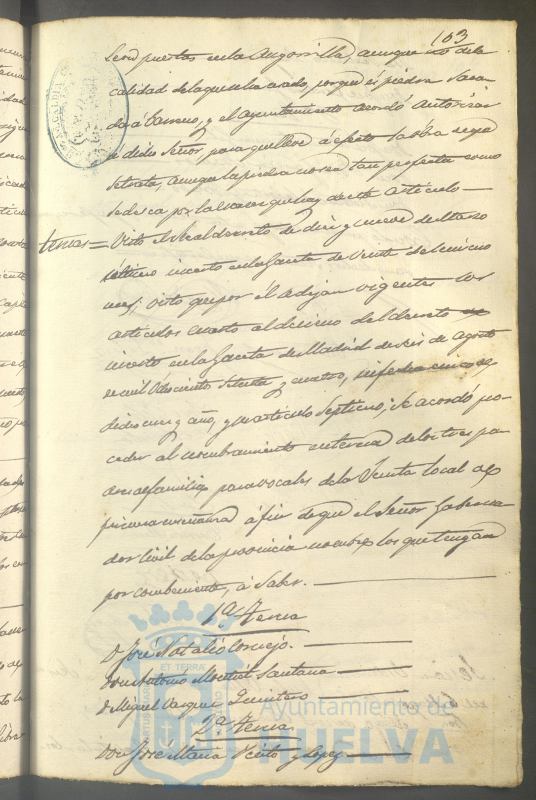 103
puertas en la Angorrilla, aunque no de la
calidad de la que se ha usado, porque es piedra
y el Ayuntamiento acordó autorizar
a dicho Señor, para que lleve a efecto la obra segun
se trata, aunque la piedra no sea tan perfecta como
se desea por la que hay de este artículo
ternas = Visto el Real decreto de diez y nueve de Marzo
último inserto en la Gaceta de veinte del mismo
mes; visto que por él se dejan vigentes los
artículos cuarto al décimo del decreto
inserto en la Gaceta de Madrid de seis de Agosto
de mil ochociento setenta y cuatro, su fecha cinco de
dicho mes y año, y su artículo septimo; se acordó pro-
ceder al nombramiento en terna de los tres pa-
dres de familia para vocales de la Junta local de
primera enseñanza á fin de que el Señor Goberna
dor Civil de la provincia nombre los que tengan
por combeniente, á saber.
1ª Terna
D. José Natalio Cornejo.
Don Antonio Montiel Santana
D. Miguel Vazquez Quintero
2ª Terna
Don José Maria Pinto y Lopez
ET TERRA
Ayuntamiento de
HUELVA